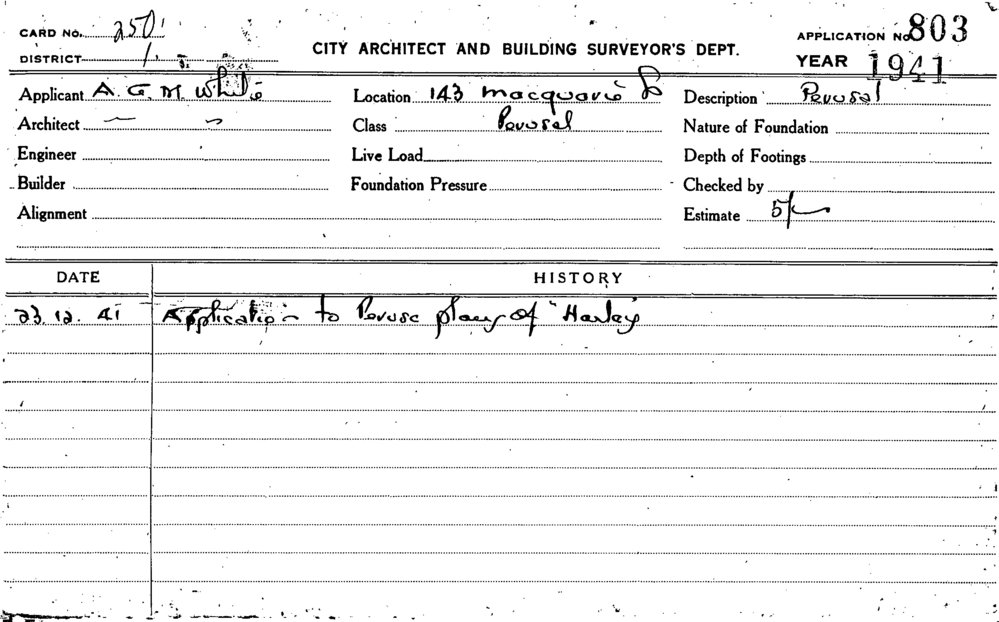 CARD No. 250
APPLICATION No. 803
CITY ARCHITECT AND BUILDING SURVEYOR'S DEPT.
DISTRICT 1
YEAR 1941
Applicant A. G. M. White Location 143 Macquarie St Description Perusal
Architect Class Perusal Nature of Foundation
Engineer Live Load Depth of Footings
Builder Foundation Pressure Checked by
Alignment Estimate 5/-
DATE HISTORY
23.12.41 Application to Peruse plans of